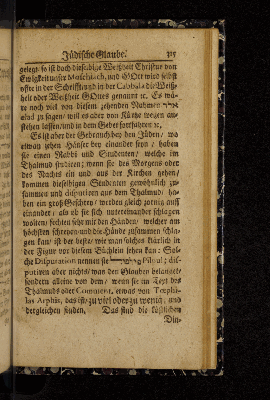 Jüdische Glaube.
gelegt so ist doch dieselbige Weißheit Christus von
Ewigkeit unser Maschiach, und GOtt wird selbst
offte in der Schrifft und in der Cabbala die Weiß-
heit oder Weißheit Gottes genannt ꝛc. Es wä-
re noch viel von diesem zehenden Nahmen
alad zu sagen, weil es aber von Kürtze wegen an-
stehen lassen, und in dem Gebet fortfahren ꝛc,
Es ist aber der Gebrauch bey den Jüden, wo
etwan zehen Häuser bey einander seyn, haben
sie einen Rabbi und Studenten, welche im
Thalmud studiren; wenn sie des Morgens oder
des Nachts ein und aus der Kirchen gehen,
kommen dieselbigen Studenten gewöhnlich zu-
sammen und disputiren aus dem Thalmud, ha-
ben ein groß Geschrey, werden gleich zornig auff
einander, als ob sie sich untereinander schlagen
wolten, fechten sehr mit den Händen, welcher am
höchsten schreyen und die Hände zusammen schla-
gen kan, ist der beste, wie man solches klärlich in
der Figur vor diesem Büchlein sehen kan: Sol-
che Disputation nennen sie Pilpul; dis-
putiren aber nichts, was den Glauben belanget,
sondern alleine von dem, wenn sie ein Text des
Thalmuds oder Comment, etwas von
das ist, zu viel oder zu wenig, und
dergleichen finden. Das sind die köstlichen
Din-